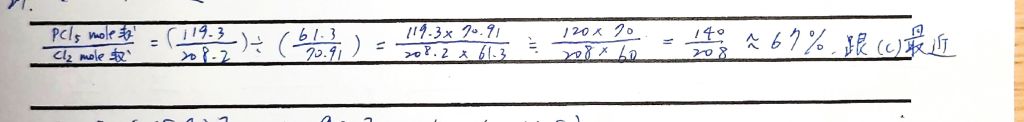 PCl5 mole數 / Cl2 mole數 = (119.3 / 208.2) ÷ (61.3 / 70.91) = 119.3 x 70.91 / 208.2 x 61.3 ≒ 120 x 70 / 208 x 60 = 140 / 208 ≈ 67%. 跟(c)最近